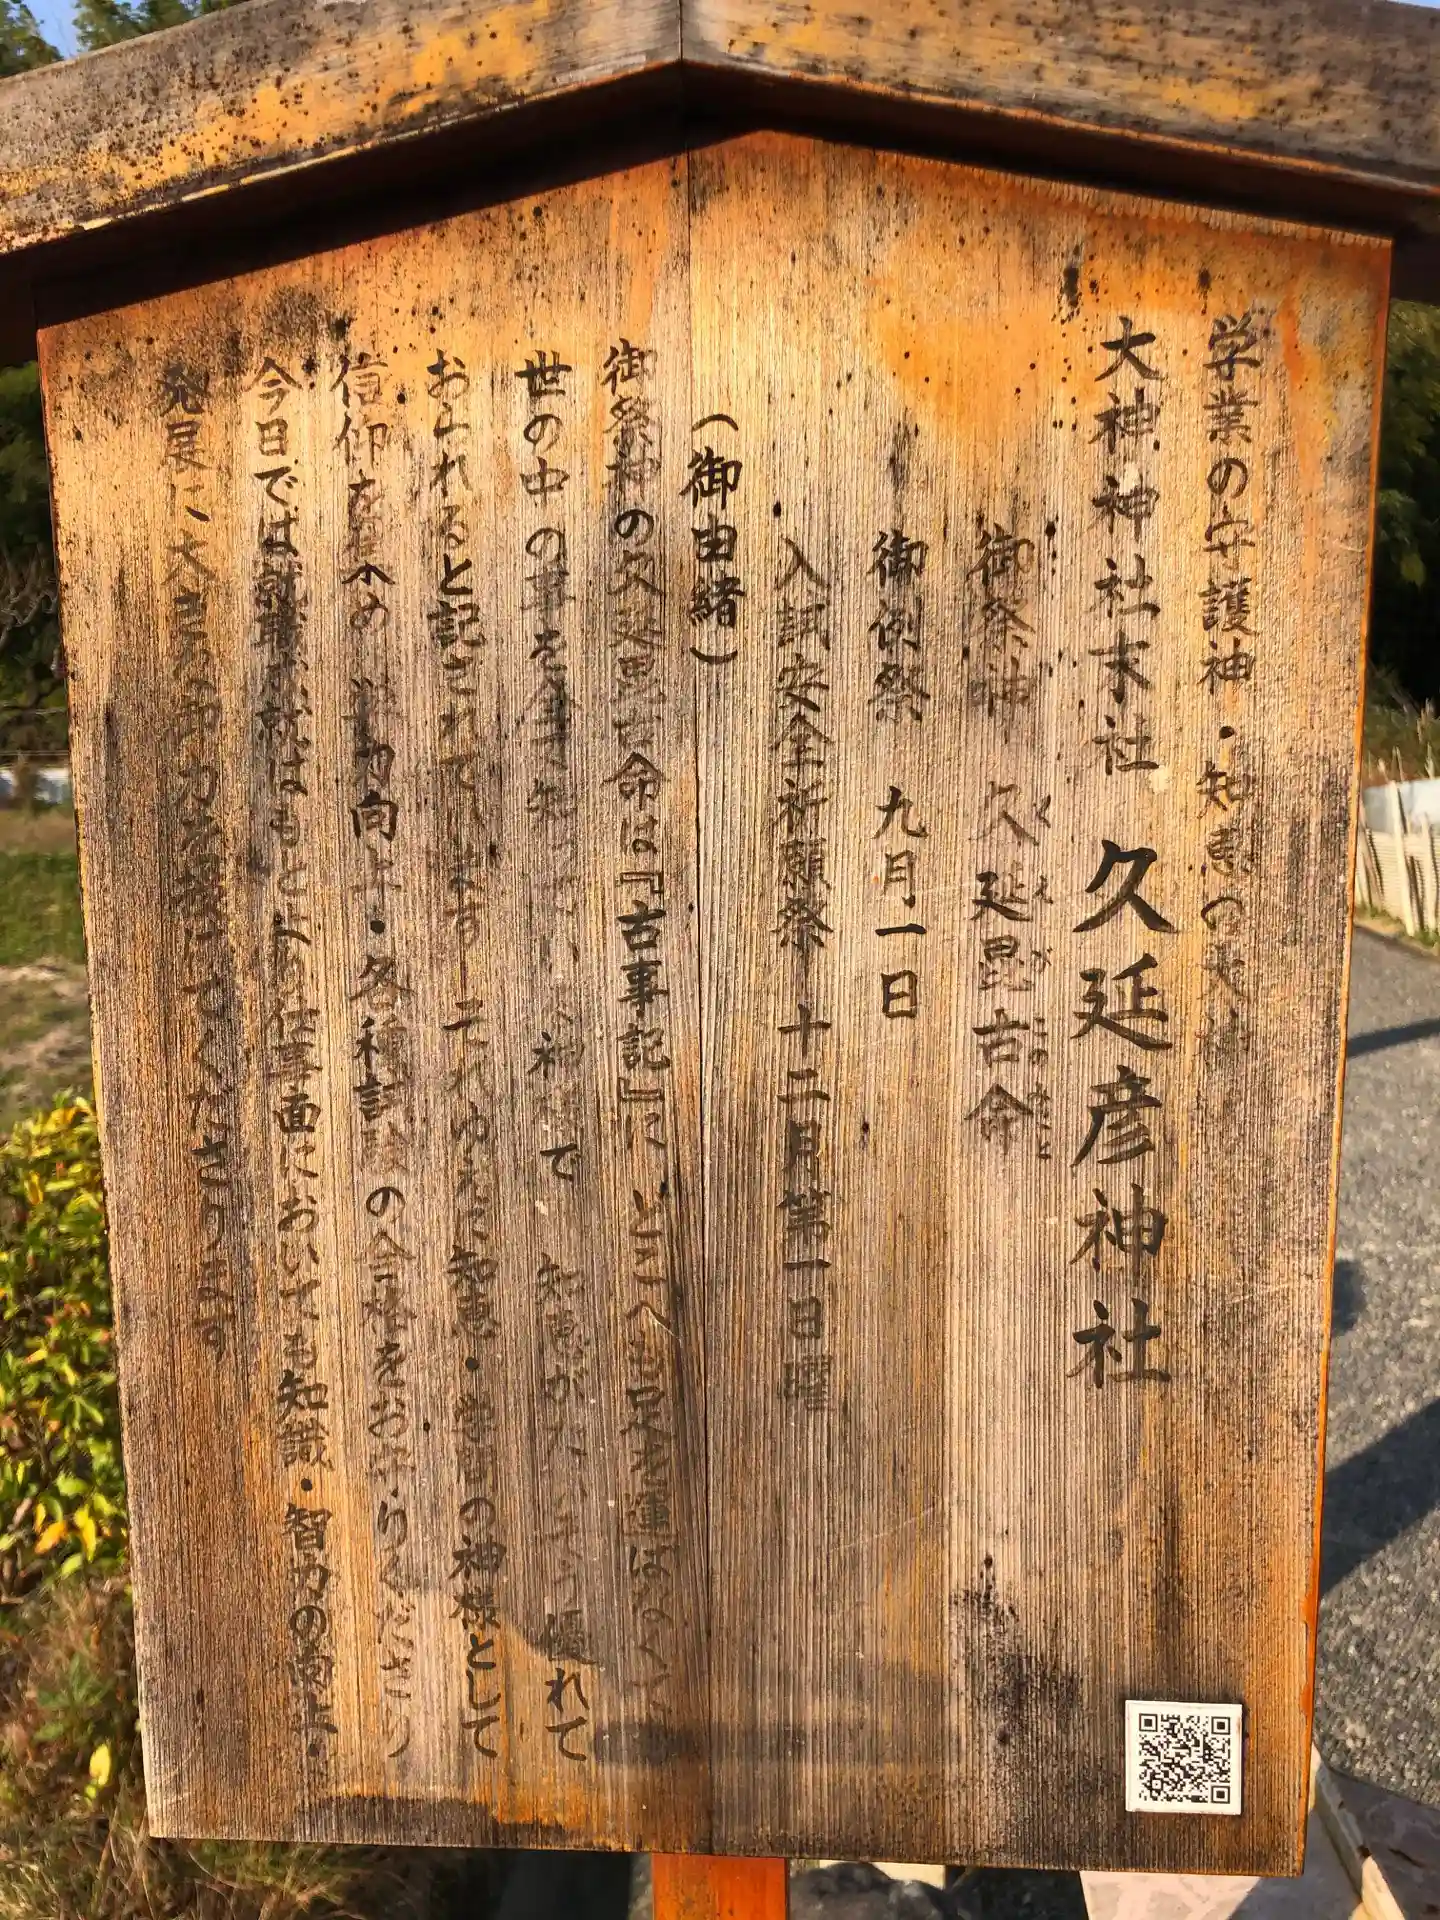 学業の守護神・知恵の大神
大神神社末社 久延彦神社
御祭神 久延毘古命
くえびこのみこと
御例祭 九月一日
入試安全祈願祭 十二月第一日曜
(御由緒)
御祭神の久延毘古命は『古事記』に どこへも足を運ばなくて
世の中の事を全て知っている神様で 知恵がたいそう優れて
おられると記されています それゆえに知恵・学問の神様として
信仰を集め 学力向上・各種試験の合格をお守りくださり
今日では就職成就はもとより仕事面においても知識・智力の向上・
発展に大きな御力を授けてくださります